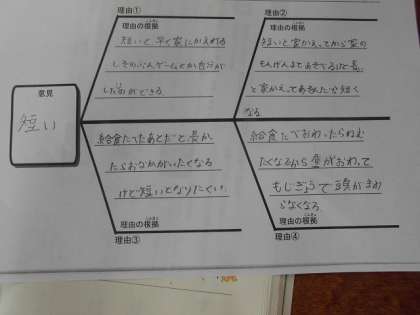 理由①
理由の根拠
短いと早く家にかえれる
しそのぶんゲームとか自分が
したいができる
理由②
理由の根拠
短いと家かえってから家の
もんげんまであそべるけど長い
と家かえってあそんだら短く
なる
意見
短い
給食たべたあとだと長か
たらおなかがいたくなる
けど短いとなりにくい
理由の根拠
理由③
給食たべておわったらねむ
たくなるから昼がおわって
もじぎょうで頭がまわ
らなくなる
理由の根拠
理由④